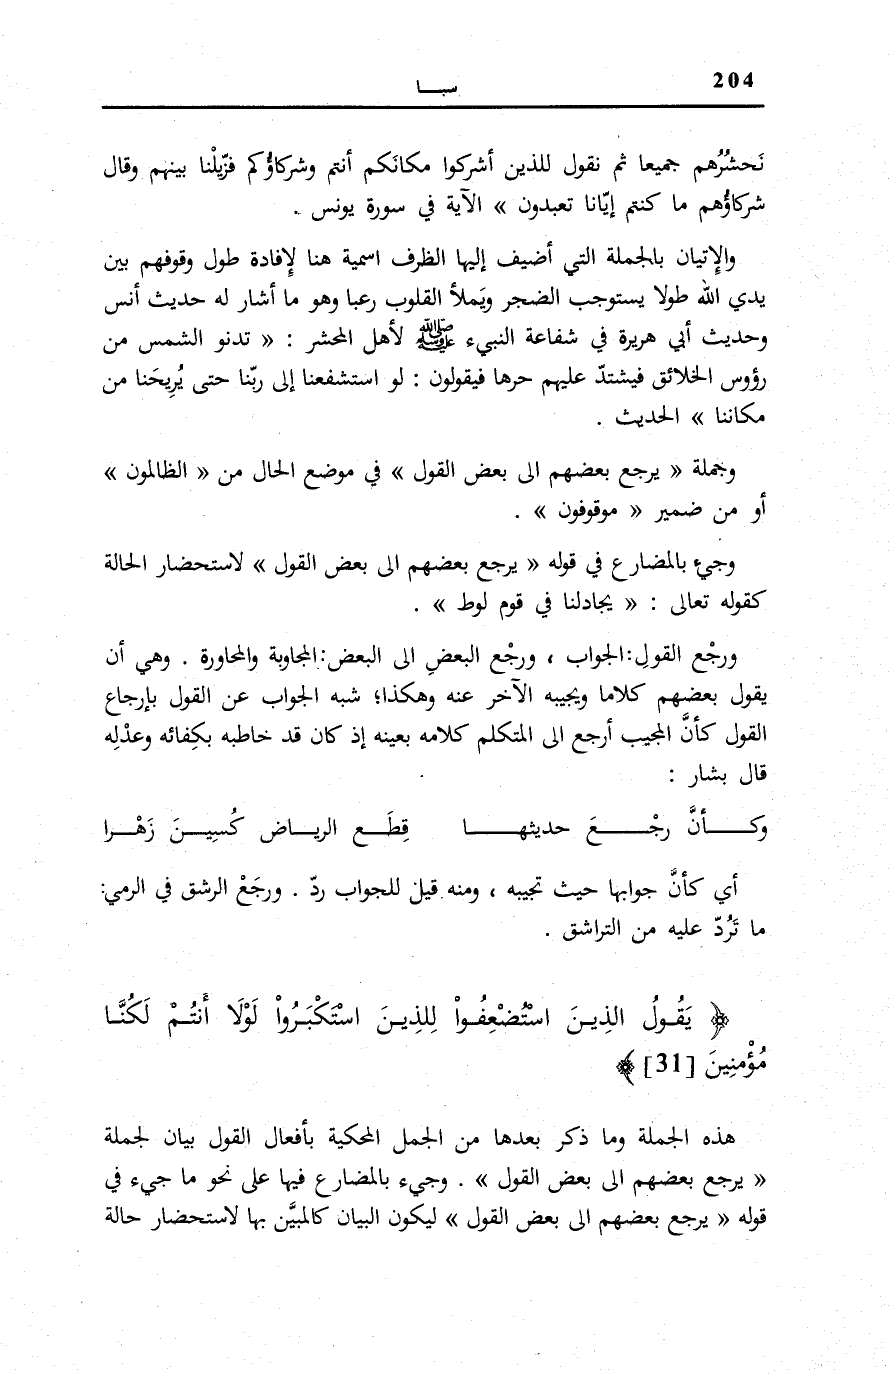 204
سبــا
نَحشُرُهم جميعا ثم نقول للذين أشركوا مكانَكم أنتم وشركاؤُكم فزَيلْنا بينهم وقال
شركاؤُهم ما كنتم إيّانا تعبدون » الآية في سورة يونس .
والإتيان بالجملة التي أضيف إليها الظرف اسمية هنا لإفادة طول وقوفهم بين
يدي الله طولا يستوجب الضجر ويَملأ القلوب رعبا وهو ما أشار له حديث أنس
وحديث أبي هريرة في شفاعة النبيء ﷺ لأهل المحشر : « تدنو الشمس من
رؤوس الخلائق فيشتدّ عليهم حرها فيقولون : لو استشفعنا إلى ربّنا حتى يُريحَنا من
مكاننا » الحديث .
وجملة « يرجع بعضهم الى بعض القول » في موضع الحال من « الظالمون »
أو من ضمير « موقوفون » .
وجيءَ بالمضارع في قوله « يرجع بعضهم الى بعض القول » لاستحضار الحالة
كقوله تعالى : « يجادلنا في قوم لوط » .
ورجْع القولِ:الجواب ، ورجْع البعضِ الى البعض:المجاوبة والمحاورة . وهي أن
يقول بعضهم كلاما ويجيبه الآخر عنه وهكذا؛ شبه الجواب عن القول بإرجاع
القول كأنَّ المجيب أرجع الى المتكلم كلامه بعينه إذ كان قد خاطبه بكِفائه وعدْلِه
قال بشار :
وكــأنَّ رجْــعَ حديثهــا قِطَــع الريــاض كُسِيــنَ زَهْــرا
أي كأنَّ جوابها حيث تجيبه ، ومنه قيل للجواب ردّ . ورجَعْ الرشق في الرمي:
ما تَرُدّ عليه من التراشق .
﴿ يَقُــولُ الذِيــنَ اسْتُضْعِفُــواْ لِلذِيــنَ اسْتَكْبَــرُواْ لَوْلَا أَنتُــمْ لَكُنَّــا
مُؤْمِنِينَ [31] ﴾
هذه الجملة وما ذكر بعدها من الجمل المحكية بأفعال القول بيان لجملة
« يرجع بعضهم الى بعض القول » . وجيء بالمضارع فيها على نحو ما جيء في
قوله « يرجع بعضهم الى بعض القول » ليكون البيان كالمبيَّن بها لاستحضار حالة